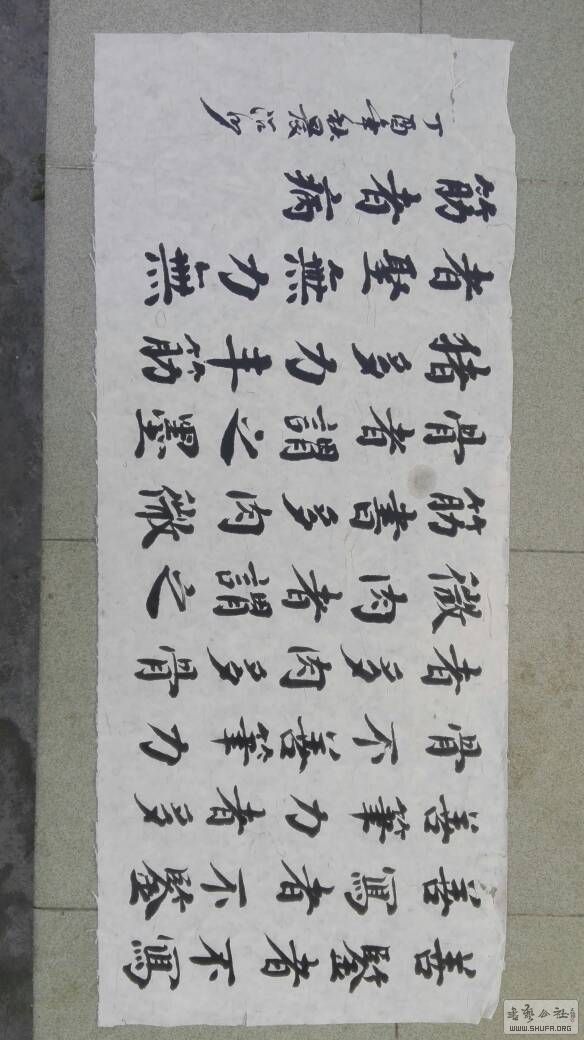 善鑒者不寫
善寫者不鑒
善筆力者多
骨不善筆力
者多肉多骨
微肉者謂之
筋書多肉微
骨者謂之墨
猪多力丰筋
者聖無力無
筋者病
丁酉年秋晨
WWW.SHUFA.ORG